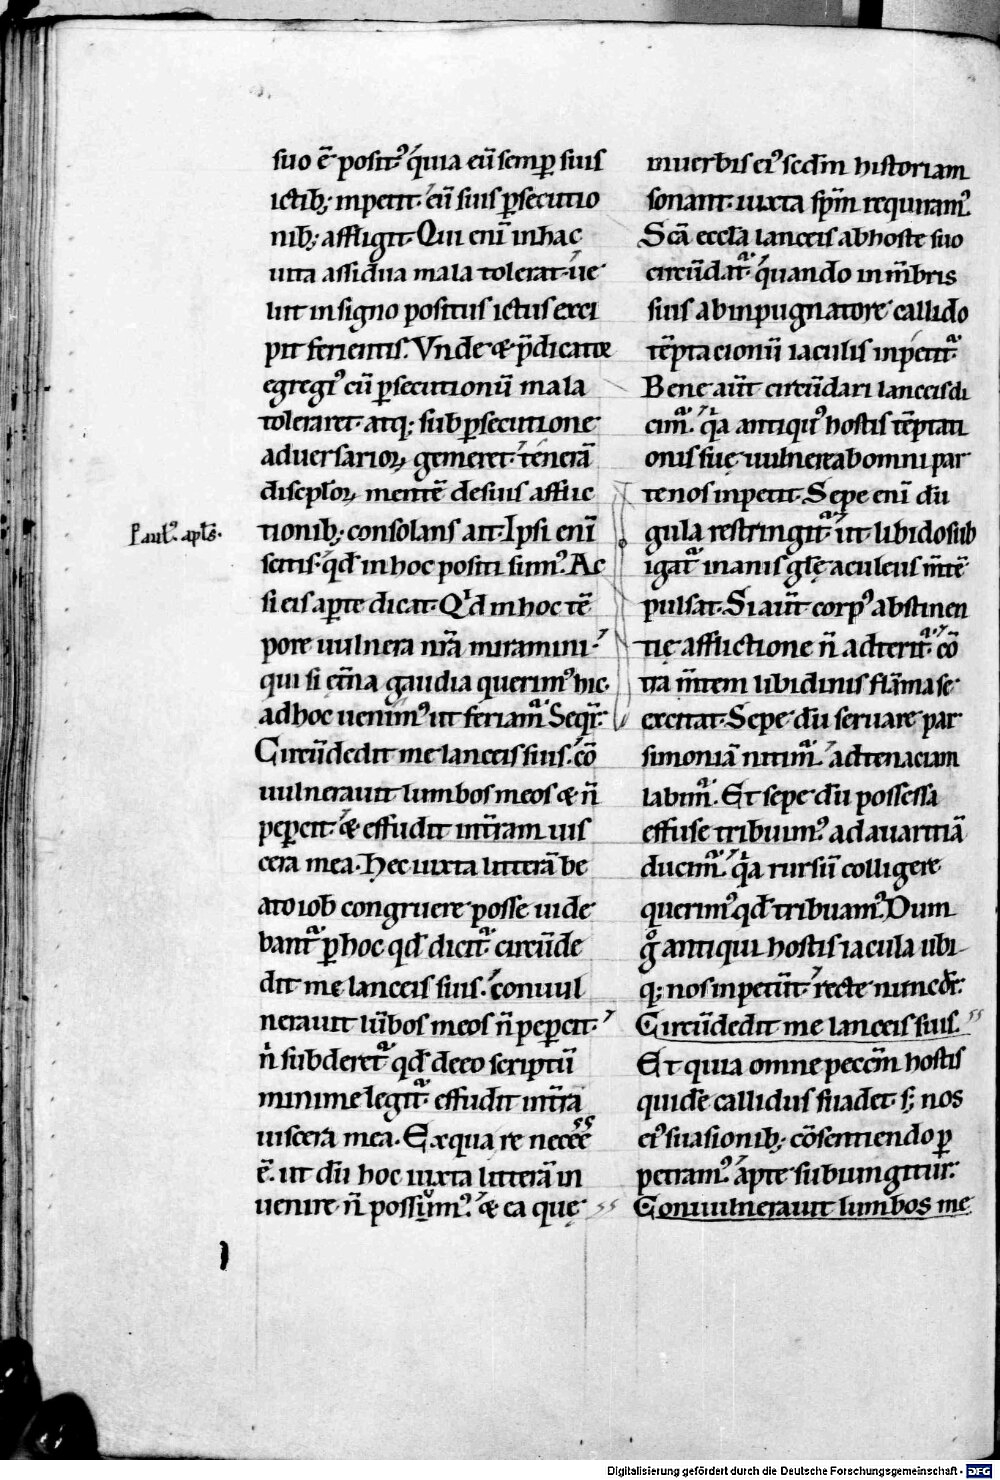 suo ē posit᷒ q́uia eū semꝑ suis
ictib; inpetit· eū suis ꝑsecutio
nib; affligit· Qui enī in hac
uita assidua mala tolerat· ue
lut in signo positus ictus exci
pit ferientis. Vnde & p̄dicator
egregi᷒ cū ꝑsecutionū mala
toleraret· atq; sub ꝑsecutione
aduersarioꝝ gemeret· tenerā
discploꝝ mentē de suis afflic
Paul᷒ apl̄s·
tionib; consolans ait· Ipsi enī
scitis· qd̄ in hoc positi sum᷒· Ac
si eis aꝑte dicat· Qⁱd in hoc tē
pore uulnera nr̄a miramini·
qui si et̄na gaudia querim᷒ hic·
ad hoc uenim᷒ ut feriamᷓ· Seqr̄·
Circūdedit me lanceis suis· cō
uulnerauit lumbos meos & n̄
peꝑcit· & effudit in tr̄am uis
cera mea· Hec iuxta litterā be
ato iob congruere posse uide
bantᷓ· ꝑ hoc qd̄ dicitᷓ· circūde
dit me lanceis suis· conuul
nerauit lūbos meos n̄ peꝑcit·
n̄ subderetᷓ qd̄ de eo scriptū
minime legitᷓ· effudit in tr̄a
uiscera mea· Ex qua re necēē
ē· ut dū hoc iuxta litterā in
uenire n̄ possum᷒· & ea quę
in uerbis ei᷒ sedm̄ historiam
sonant· iuxta sp̄m requiram᷒·
Scā eccła lanceis ab hoste suo
circūdatᷓ· quando in m̄bris
suis ab inpugnatore callido
tēptacionū iaculis inpetitᷓ·
Bene aūt circūdari lanceis di
cimᷓ· qⁱa antiqu᷒ hostis tēptati
onis suę uulnere ab omni par
te nos inpetit· Sepe enī dū
gula restringitᷓ· ut libido sub
igatᷓ· inanis gl̄ę aculeus m̄tē
pulsat· Si aūt corp᷒ abstinen
tię afflictione n̄ adteritᷓ· cō
tra m̄tem libidinis flāma se
excitat· Sepe dū seruare par
simoniā nitimᷓ· ad tenaciam
labimᷓ· Et sepe dū possessa
effuse tribuim᷒· ad auaritiā
ducimᷓ· qⁱa rursū colligere
querim᷒ qd̄ tribuam᷒· Dum
gͦ antiqui hostis iacula ubi
q; nos inpetūt· recte nunc dr̄·
Circūdedit me lanceis suis·
Et quia omne peccm̄ hostis
quidē callidus suadet· s; nos
ei᷒ suasionib; cōsentiendo ꝑ
petram᷒· aꝑte subiungitur·
Conuulnerauit lumbos me